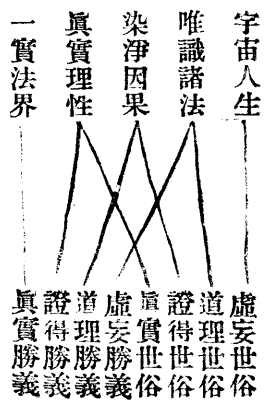 宇宙人生
唯識諸法
染淨因果
眞實理性
一實法界
虛妄世俗
道理世俗
證得世俗
眞實世俗
虛妄勝義
道理勝義
證得勝義
眞實勝義